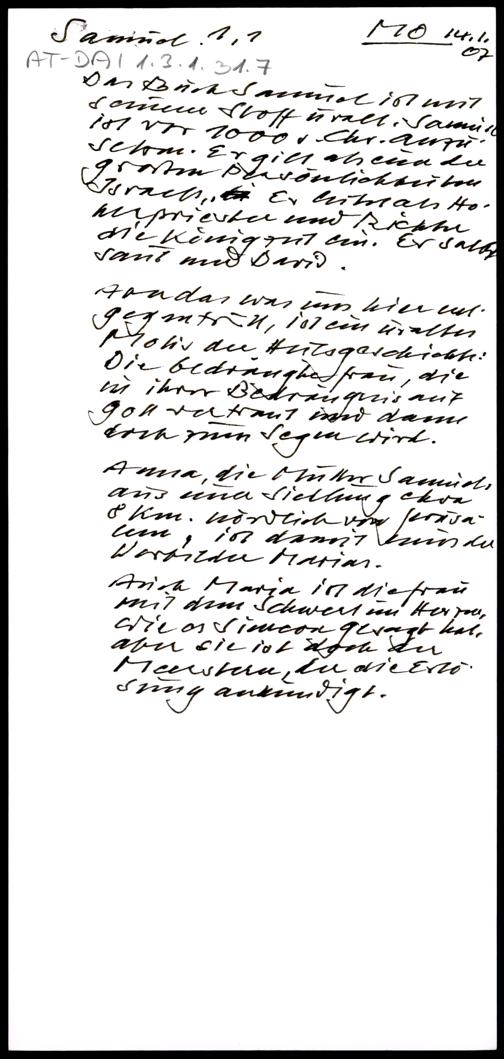 Samuel 1,1 MO 14.1.
07
AT-DAI 1.3.1.31.7
Das Buch Samuel ist mit
seinem Stoff uralt. Samuel
ist vor 1000 v. Chr. anzu-
setzen. Er gilt als eine der
großen Persönlichkeiten
Israels. Er leitet als Ho-
herpriester und Richter
die Königszeit ein. Er salbt
Saul und David.
Annas was uns hier ent-
gegentritt, ist ein uraltes
Motiv der Heilsgeschichte:
Die bedrängte Frau, die
in ihrer Bedrängnis auf
Gott vertraut und dann
doch zum Segen wird.
Anna, die Mutter Samuels
aus einer Siedlung etwa
8 Km. nördlich von Jerusa-
lem, ist damit eines der
Vorbilder Marias.
Auch Maria ist die Frau
mit dem Schwert im Herzen,
wie es Simeon gesagt hat,
aber sie ist doch der
Meerstern, der die Erlö-
sung ankündigt.